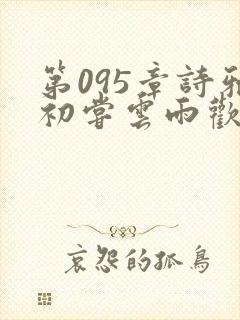 第095章詩雅
初嘗雲雨歡
哀怨的孤鳥